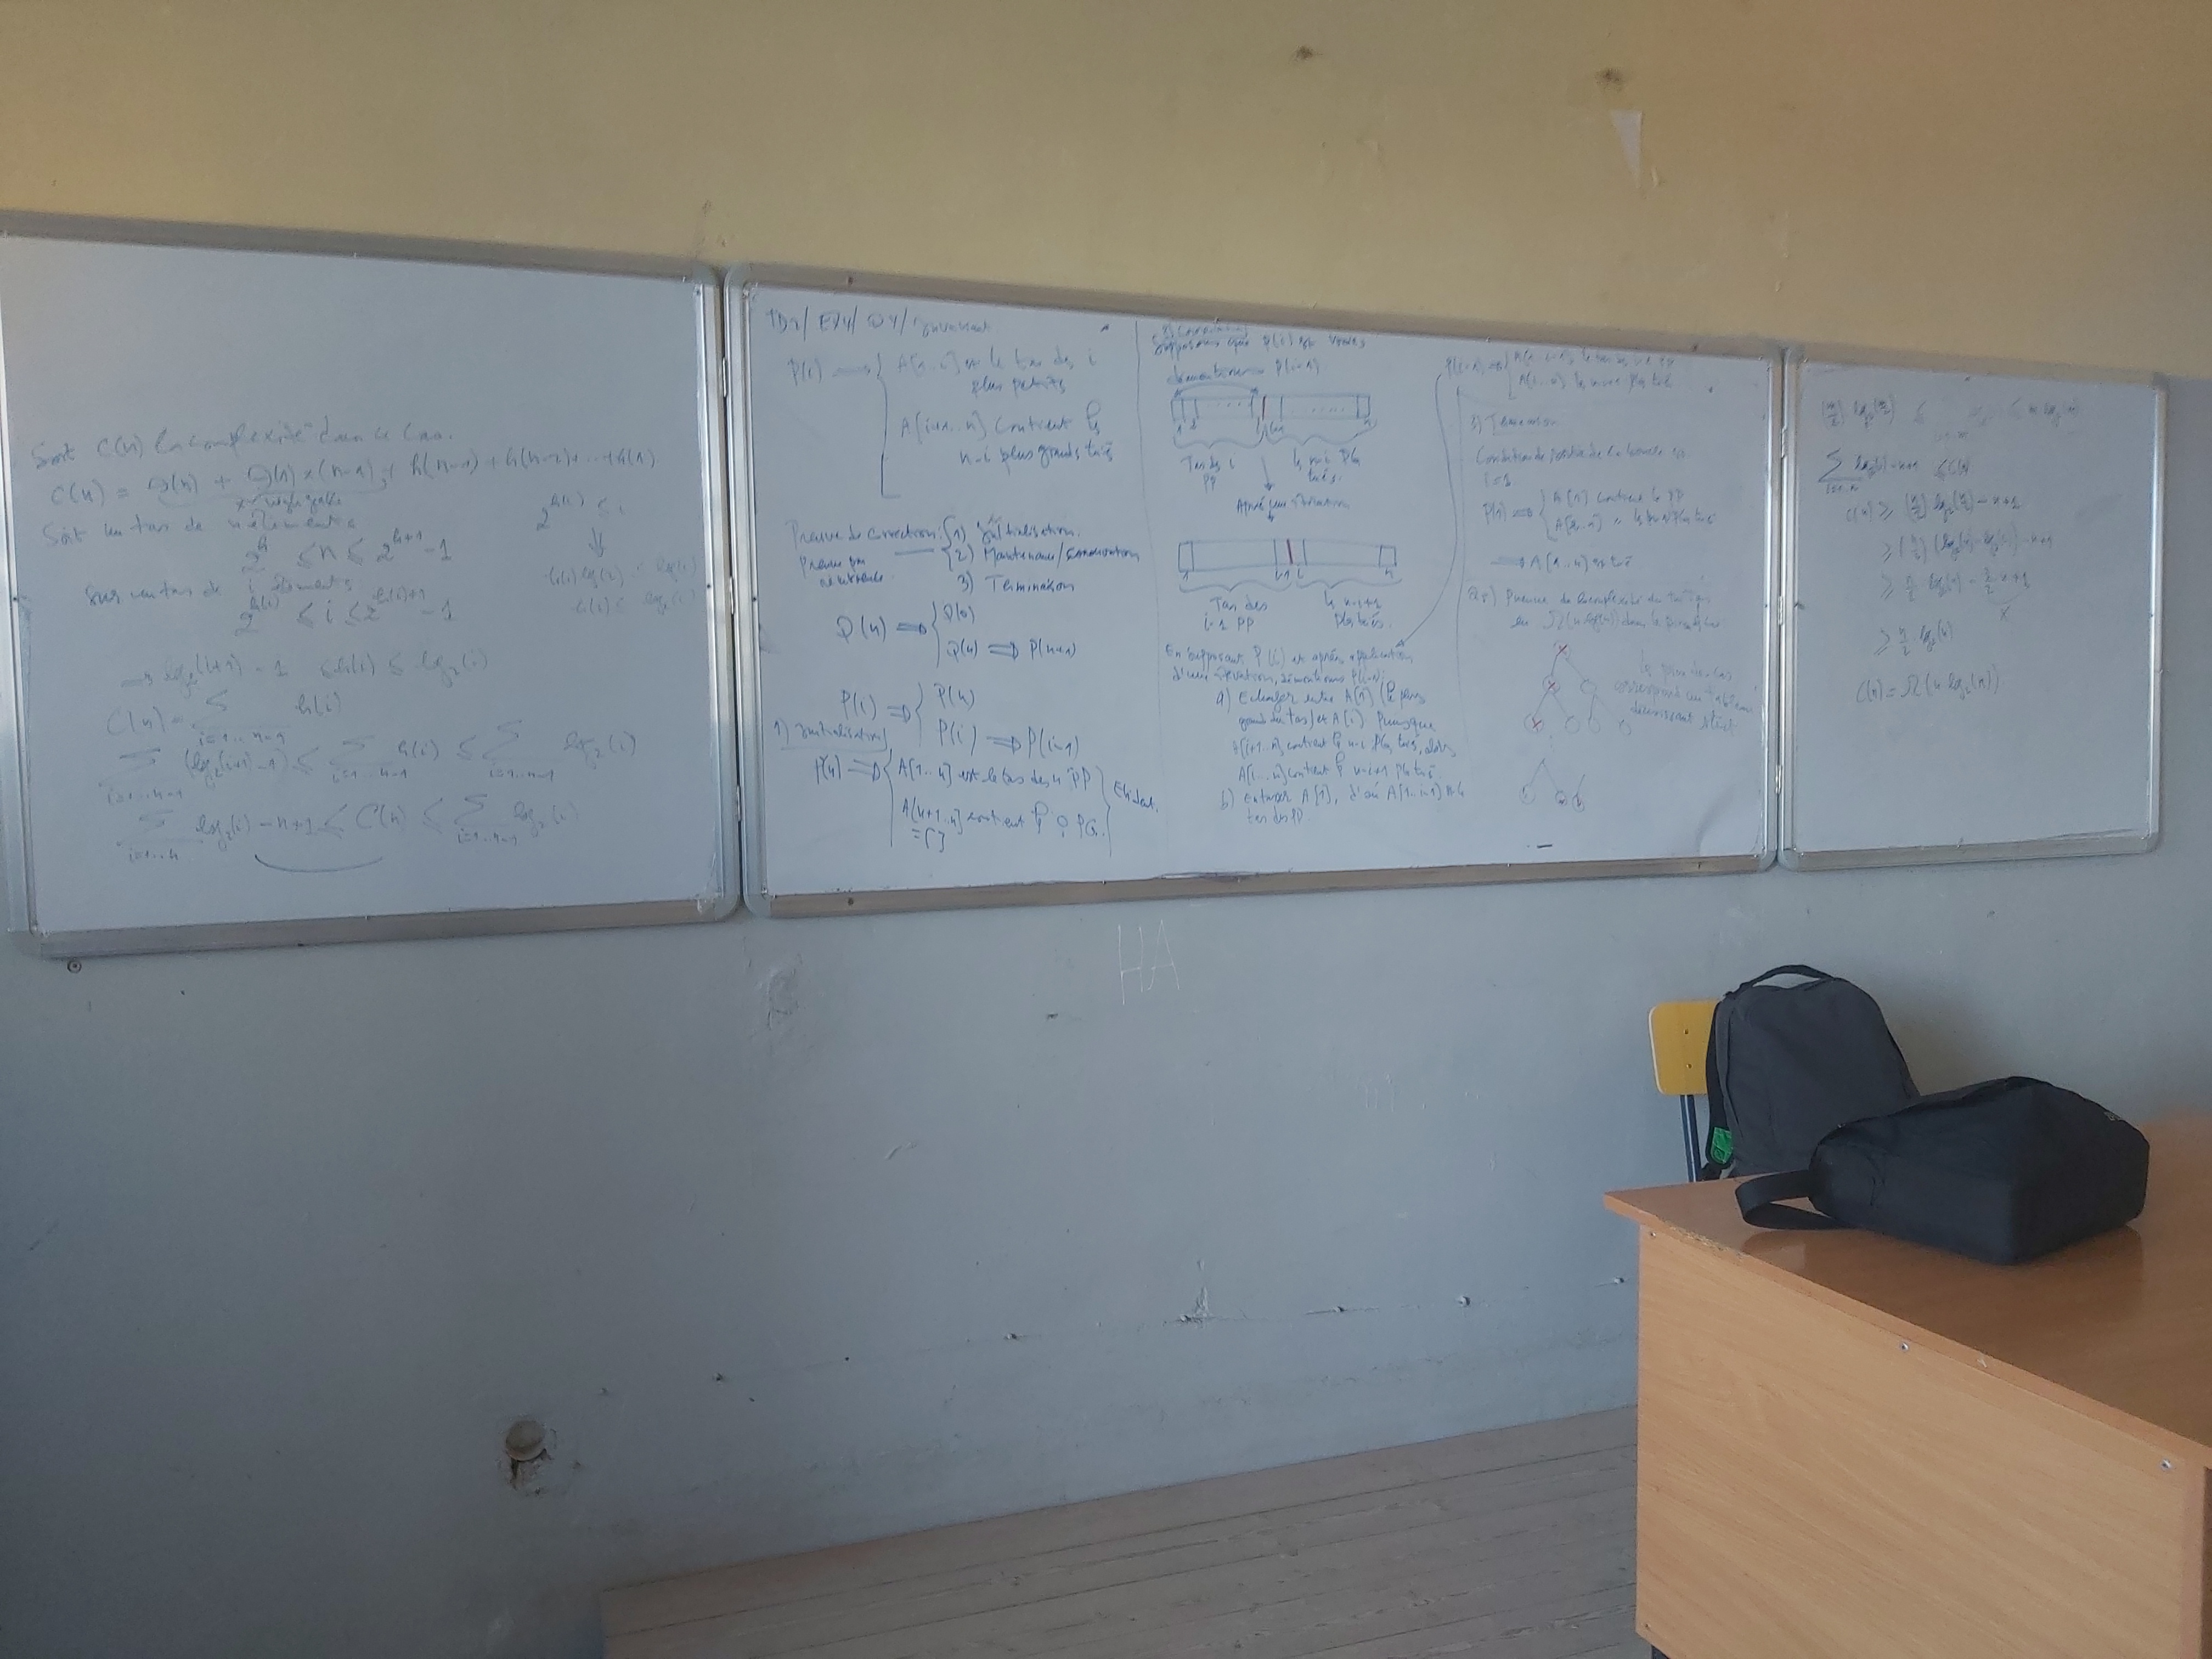 Soit C(n) la complexité dans ce cas.
C(n) = Θ(n) + Θ(1) × (n-1) + h(n-1) + h(n-2) + ... + h(1)
négligeable
Soit un tas de n éléments
2^h ≤ n ≤ 2^{h+1} - 1
Sur un tas de i éléments
2^{h(i)} ≤ i ≤ 2^{h(i)+1} - 1
2^{h(i)} ≤ i
⇓
h(i) log(2) ≤ log(i)
h(i) ≤ log₂(i)
→ log₂(i+1) - 1 ≤ h(i) ≤ log₂(i)
C(n) = ∑_{i=1..n-1} h(i)
∑_{i=1..n-1} (log₂(i+1) - 1) ≤ ∑_{i=1..n-1} h(i) ≤ ∑_{i=1..n-1} log₂(i)
∑_{i=1..n} log₂(i) - n+1 ≤ C(n) ≤ ∑_{i=1..n-1} log₂(i)
invariant
P(i) ⟹ { A[1..i] est le tas des i
plus petits
A[i+1..n] contient les
n-i plus grands triés
Preuve de correction: 1) Initialisation.
Preuve par
récurrence
2) Maintenance/conservation
3) Terminaison
Q(n) ⟹ { Q(0)
Q(n) ⟹ P(n+1)
P(i) ⟹ { P(n)
P(i) ⟹ P(i-1)
1) Initialisation
P(n) ⟹ { A[1..n] est le tas des n PP
A[n+1..n] contient les 0 PG. } Evident.
= []
Supposons que P(i) est vraie
démontrons P(i-1)
1 2 i i+1 n
Tas des i
PP
les n-i PG
triés.
Après une itération
1 i-1 i n
Tas des
i-1 PP
les n-i+1
PG triés.
En supposant P(i) et après application
d'une itération, démontrons P(i-1):
a) Echanger entre A[1] (le plus
grand du tas) et A[i] Puisque
A[i+1..n] contient les n-i PG triés, alors
A[i..n] contient les n-i+1 PG triés
b) Entasser A[1], d'où A[1..i-1] est le
tas des PP.
3) Terminaison
Condition de sortie de la boucle
i=1
P(1) ⟹ { A[1] contient le PP
A[2..n] les n-1 PG triés
⟹ A[1..n] est trié
Preuve de la complexité du tri
en Ω(n log(n)) dans le pire cas
le pire des cas
correspond au tableau
décroissant
∑_{i=1..n} log₂(i) - n+1 ≤ C(n)
C(n) ≥ (n/2) log₂(n/2) - n+1
≥ (n/2) (log₂(n) - log₂(2)) - n+1
≥ n/2 log₂(n) - 3/2 n+1
≥ n/2 log₂(n)
C(n) = Ω(n log₂(n))
HA